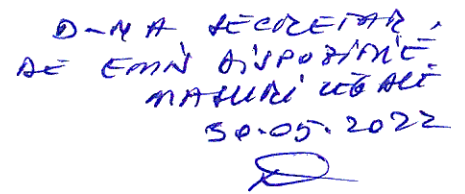 D-NA SECRETAR,
DE EMIS DISPOZIȚIE.
MASURI LEGALE
30.05.2022